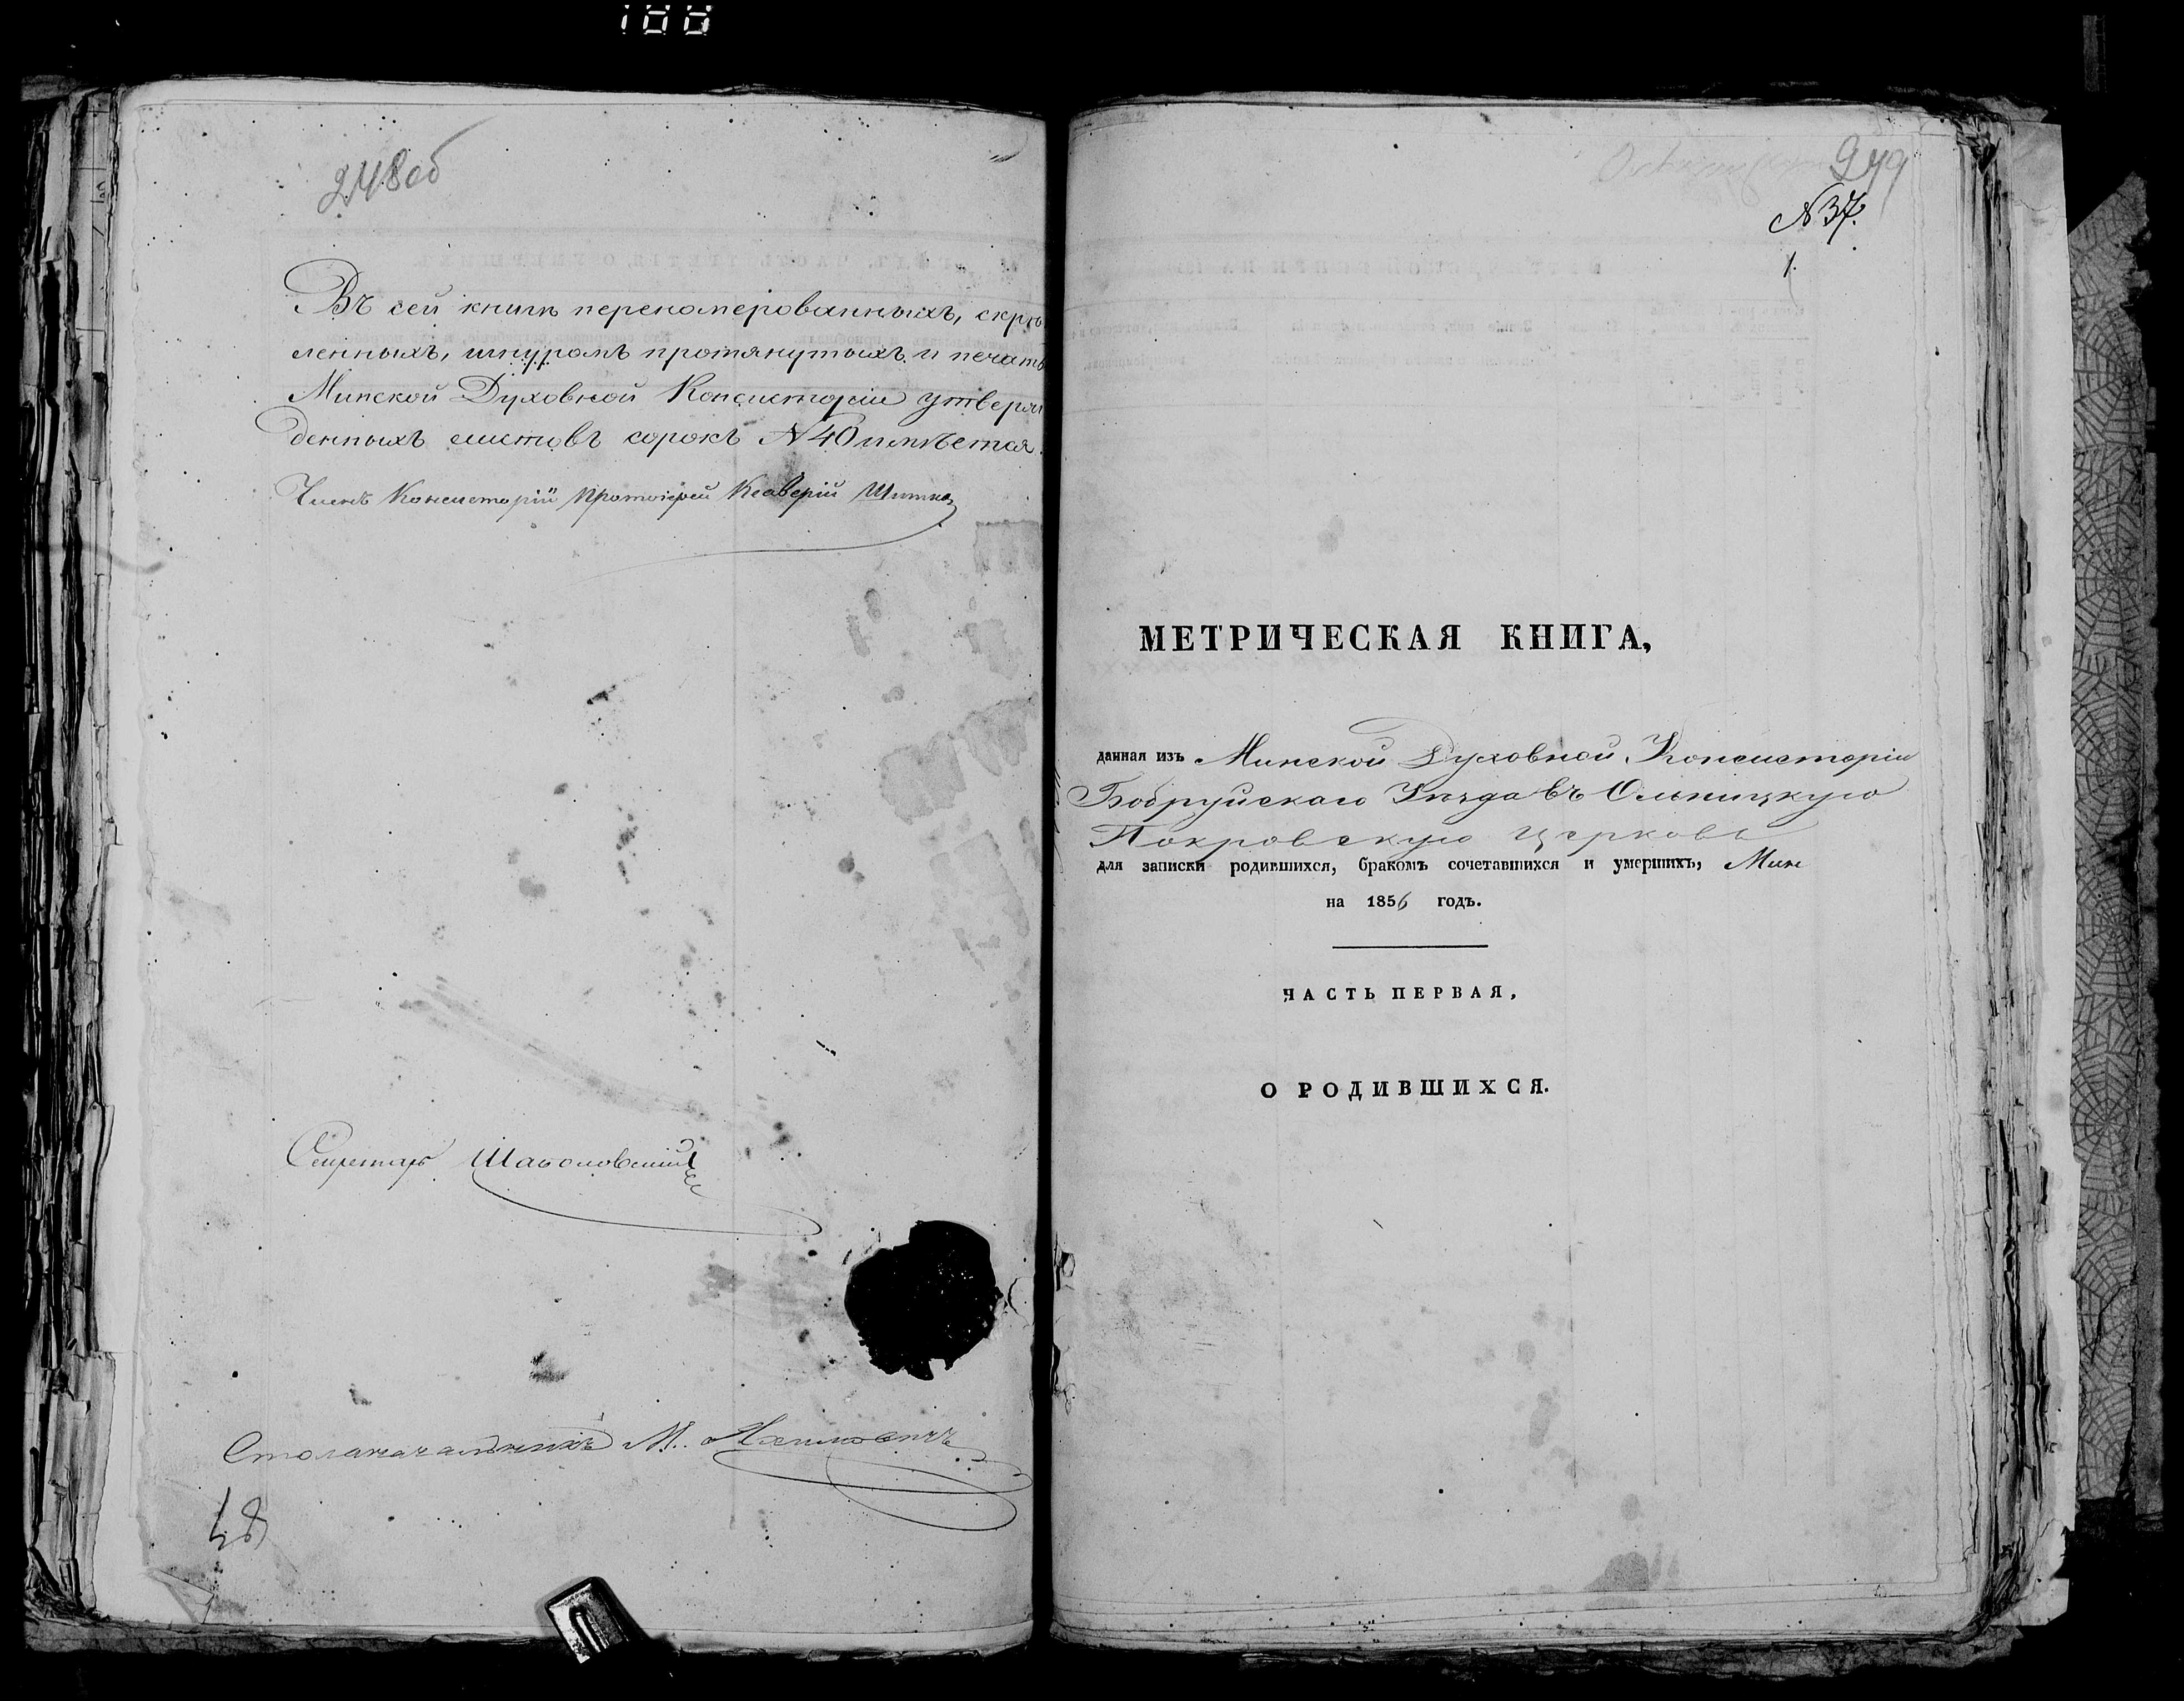 100
248 об
Въ сей книгѣ переномерованныхъ, скрѣ
пленныхъ, шнуромъ протянутыхъ и печатью
Минской Духовной Консисторіи утверж
денныхъ листовъ сорокъ №40 имѣется.
Членъ Консисторіи Протоіерей Ксаверій
Секретарь
Столоначальникъ М.
48
249
№ 37.
1.
МЕТРИЧЕСКАЯ КНИГА,
данная изъ Минской Духовной Консисторіи
Бобруйскаго Уѣзда въ Ольницкую
Покровскую церковь
для записки родившихся, бракомъ сочетавшихся и умершихъ,
на 1856 годъ.
ЧАСТЬ ПЕРВАЯ,
О РОДИВШИХСЯ.